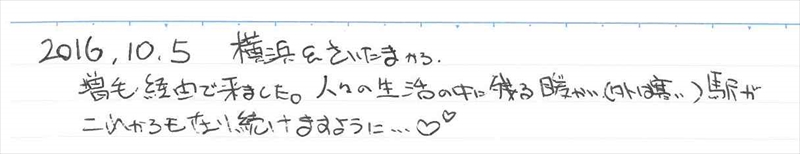 2016.10.5 横浜&さいたまから.
増毛経由で来ました。人々の生活の中に残る暖かい(外は寒い)駅が
これからも在り続けますように…♡♡